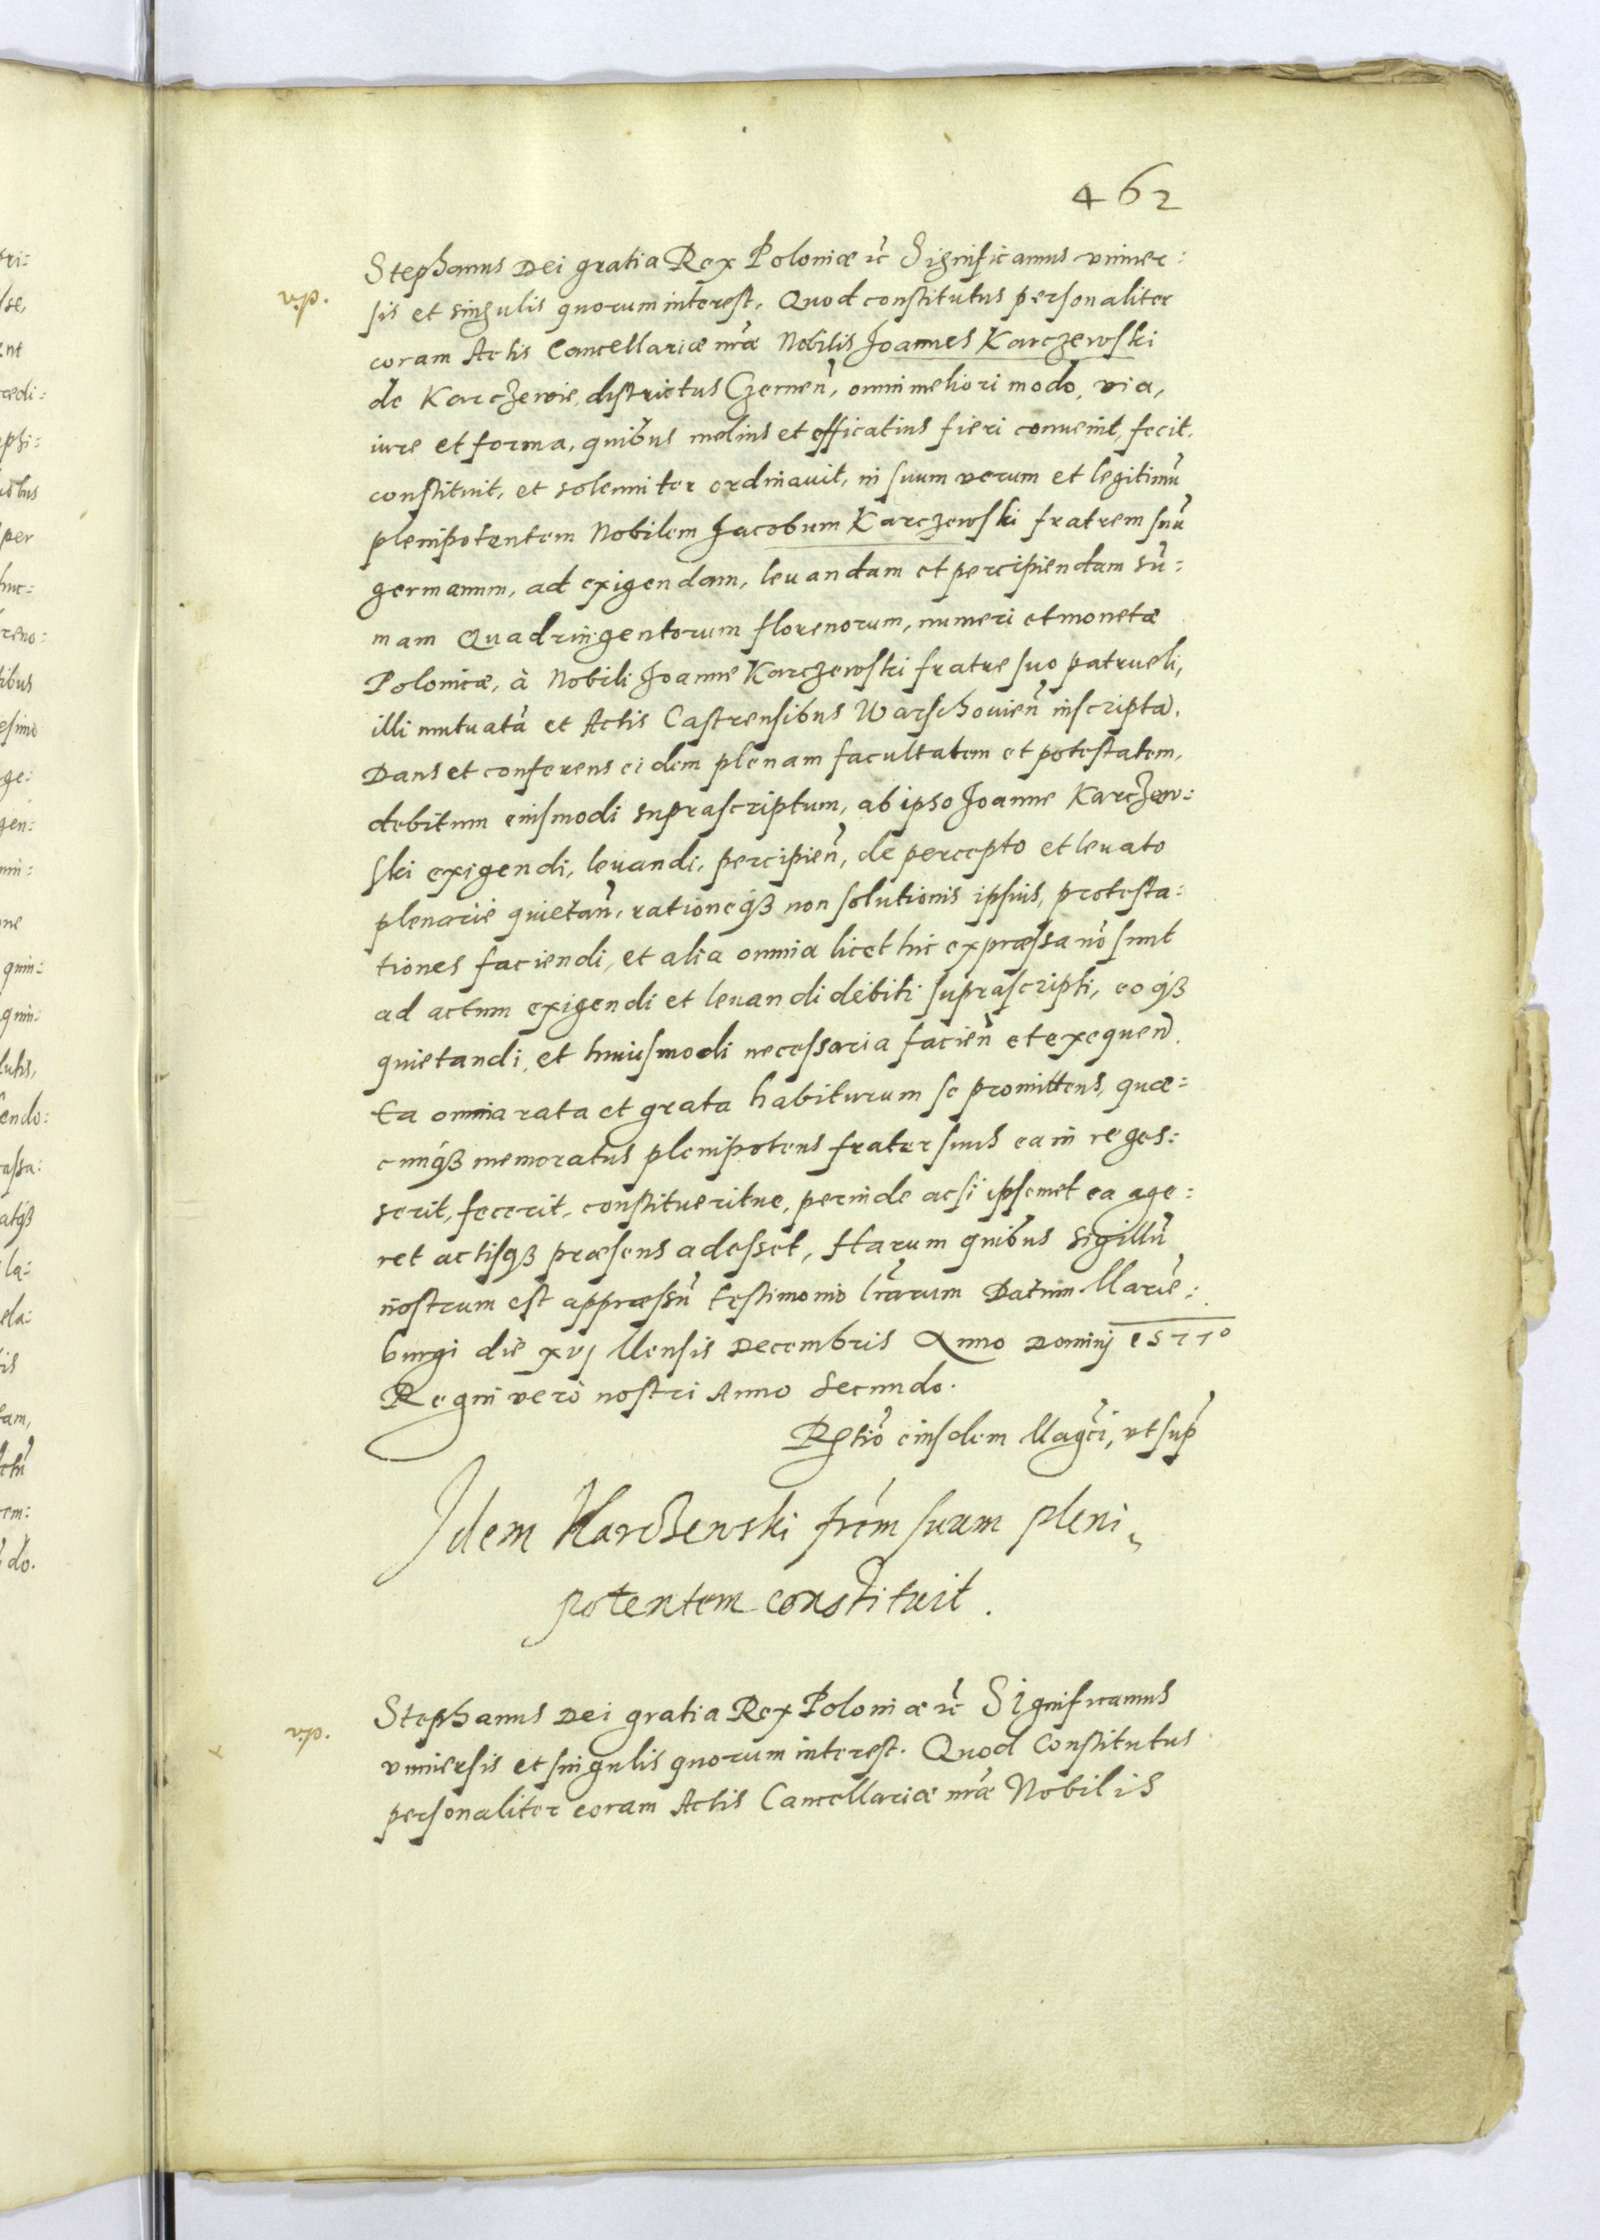 462
Stephanus Dei gratia Rex Poloniæ &c̃ Significamus vniuer:
v.p.
sis et singulis quorum interest. Quod constitutus personaliter
coram Actis Cancellariæ nr̃æ Nobilis Joannes Karczewski
de Karczewie, districtus Czernen̄, omni meliori modo, via,
iure et forma, quibus melius et efficatius fieri conuenit, fecit,
constituit, et solenniter ordinauit, in suum verum et legitimū
plenipotentem Nobilem Jacobum Karczewski fratrem suū
germanum, ad exigendam, leuandam et percipiendam sū:
mam Quadringentorum florenorum, numeri et monetæ
Polonicæ, à Nobili Joanne Karczewski fratre suo patrueli,
illi mutuatā et Actis Castrensibus Warschouien̄ inscriptā.
Dans et conferens eidem plenam facultatem et potestatem,
debitum eiusmodi suprascriptum, ab ipso Joanne Karczew:
ski exigendi, leuandi, percipien̄, de percepto et leuato
plenarie quietan̄, rationeqȝ non solutionis ipsius, protesta:
tiones faciendi, et alia omnia licet hic expræssa nō sunt
ad actum exigendi et leuandi debiti suprascripti, eoqȝ
quietandi, et huiusmodi necessaria facien̄ et exequen̄.
Ea omnia rata et grata habiturum se promittens, quæ:
cunqȝ memoratus plenipotens frater suus ea in re ges:
serit, fecerit, constitueritue, perinde ac si ipsemet ea age:
ret actisqȝ præsens adesset, Harum quibus Sigillū
nostrum est appræssū testimonio lr̃arum Datum Marie:
burgi die xvj Mensis Decembris Anno Domini 1577º
Regni verò nostri Anno Secundo.
Rl̃atio eiusdem Mag̃ci, vt sup̄
Idem Karczewski fr̃em suum pleni
potentem constituit.
Stephanus Dei gratia Rex Poloniæ &c̃ Significamus
v.p.
vniuersis et singulis quorum interest. Quod Constitutus
personaliter coram Actis Cancellariæ nr̃æ Nobilis